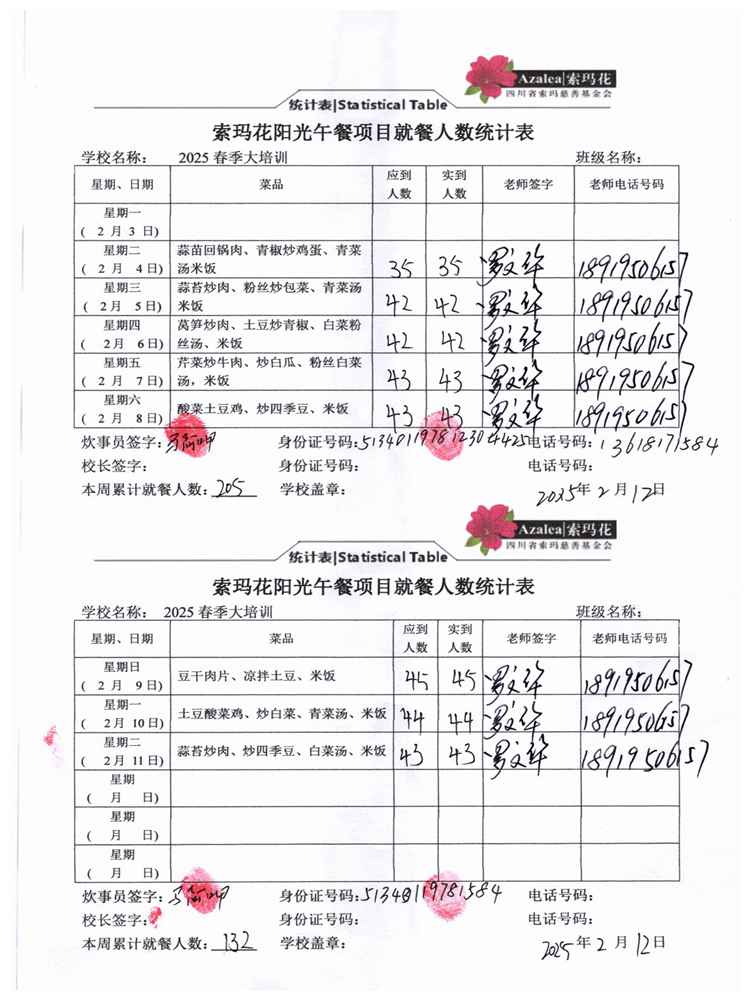 Azalea|索玛花
四川省索玛慈善基金会
统计表|Statistical Table
索玛花阳光午餐项目就餐人数统计表
学校名称： 2025 春季大培训 班级名称：
星期、日期 菜品 应到人数 实到人数 老师签字 老师电话号码
星期一
( 2 月 3 日)
星期二 蒜苗回锅肉、青椒炒鸡蛋、青菜
( 2 月 4 日) 汤米饭 35 35 罗文华 18919506157
星期三 蒜苔炒肉、粉丝炒包菜、青菜汤
( 2 月 5 日) 米饭 42 42 罗文华 18919506157
星期四 莴笋炒肉、土豆炒青椒、白菜粉
( 2 月 6 日) 丝汤、米饭 42 42 罗文华 18919506157
星期五 芹菜炒牛肉、炒白瓜、粉丝白菜
( 2 月 7 日) 汤，米饭 43 43 罗文华 18919506157
星期六
( 2 月 8 日) 酸菜土豆鸡、炒四季豆、米饭 43 43 罗文华 18919506157
炊事员签字： 身份证号码：513401197812304425 电话号码：13618171584
校长签字： 身份证号码： 电话号码：
本周累计就餐人数：205 学校盖章： 2025年 2 月 12日
Azalea|索玛花
四川省索玛慈善基金会
统计表|Statistical Table
索玛花阳光午餐项目就餐人数统计表
学校名称： 2025 春季大培训 班级名称：
星期、日期 菜品 应到人数 实到人数 老师签字 老师电话号码
星期日
( 2 月 9 日) 豆干肉片、凉拌土豆、米饭 45 45 罗文华 18919506157
星期一
( 2 月 10 日) 土豆酸菜鸡、炒白菜、青菜汤、米饭 44 44 罗文华 18919506157
星期二
( 2 月 11 日) 蒜苔炒肉、炒四季豆、白菜汤、米饭 43 43 罗文华 18919506157
星期
( 月 日)
星期
( 月 日)
星期
( 月 日)
炊事员签字： 身份证号码：51340119781584 电话号码：
校长签字： 身份证号码： 电话号码：
本周累计就餐人数：132 学校盖章： 2025年 2 月 12日